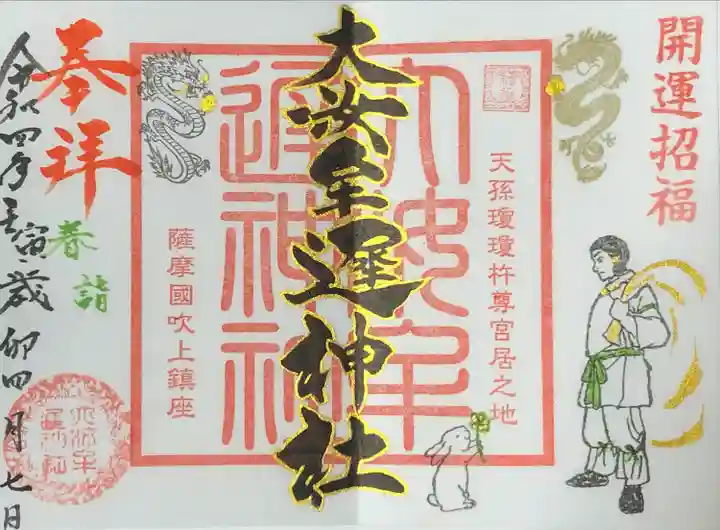 開運招福
天孫瓊瓊杵尊宮居之地
大汝牟
遲神社
大汝牟遲神社
薩摩國吹上鎮座
奉拝
春詣
令和四年壬寅歳卯四月七日